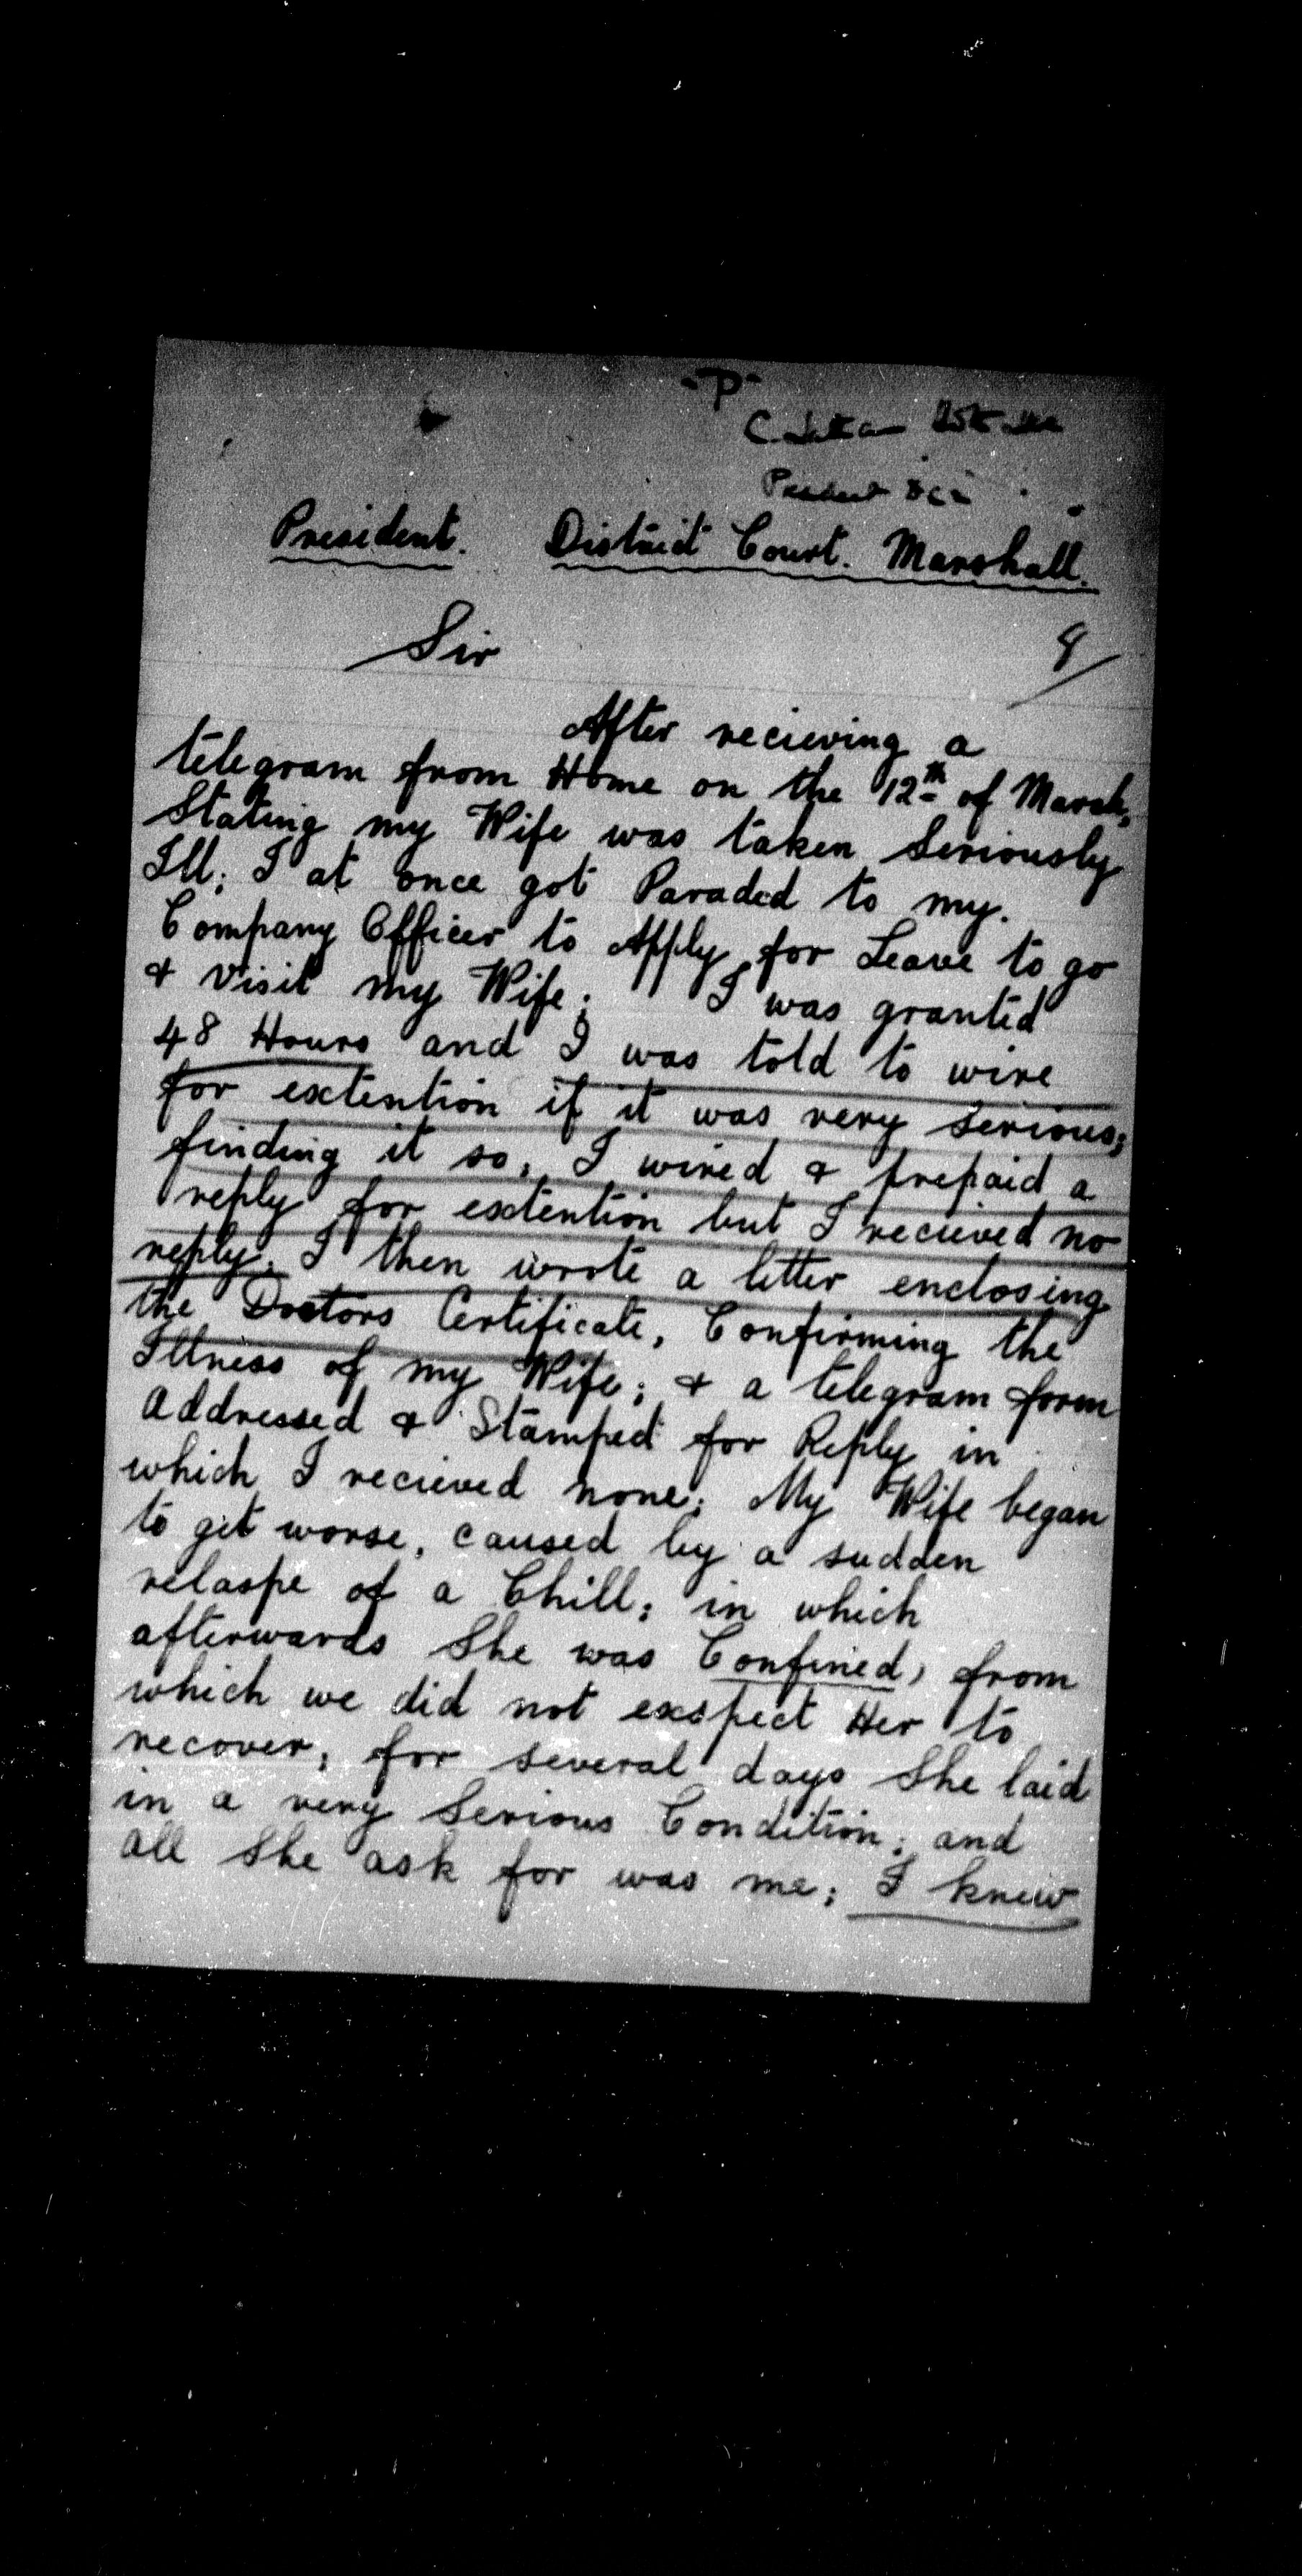 "P"
President. District Court. Marshall.
Sir
9
After recieving a
telegram from Home on the 12th of March,
Stating my Wife was taken Seriously
Ill; I at once got Paraded to my.
Company Officer to Apply for Leave to go
& visit my Wife; I was granted
48 Hours and I was told to wire
for extention if it was very serious;
finding it so, I wired & prepaid a
reply for extention but I recieved no
reply. I then wrote a letter enclosing
the Doctors Certificate, Confirming the
Illness of my Wife; & a telegram form
addressed & Stamped for Reply in
which I recieved none; My Wife began
to get worse, caused by a sudden
relaspe of a Chill; in which
afterwards She was Confined, from
which we did not exspect Her to
recover, for several days She laid
in a very Serious Condition; and
all She ask for was me; I knew